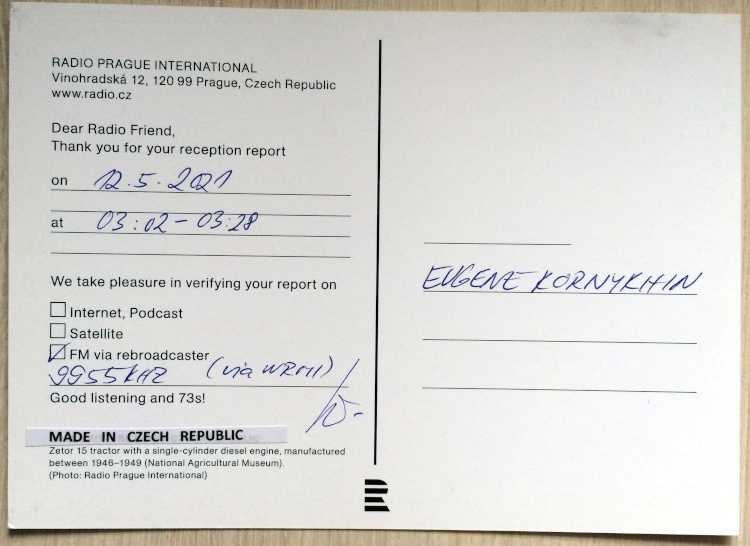 RADIO PRAGUE INTERNATIONAL
Vinohradská 12, 120 99 Prague, Czech Republic
www.radio.cz
Dear Radio Friend,
Thank you for your reception report
on 12.5.2021
at 03:02 - 03:28
We take pleasure in verifying your report on
Internet, Podcast
Satellite
FM via rebroadcaster
9955 kHz (via WRMI)
Good listening and 73s!
MADE IN CZECH REPUBLIC
Zetor 15 tractor with a single-cylinder diesel engine, manufactured
between 1946–1949 (National Agricultural Museum).
(Photo: Radio Prague International)
EUGENE KORNYKHIN